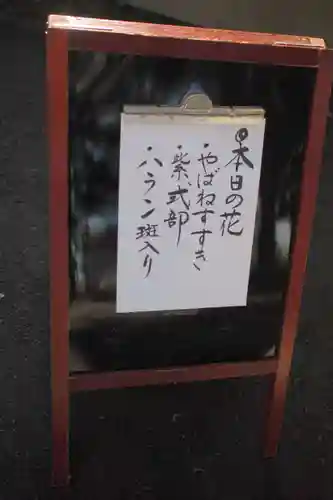 ◎本日の花
・やばねすすき
・紫式部
・ハラン斑入り